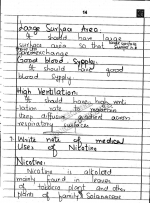 14
Large Surface Area:
It should have large
surface area so that
exchange
Good Blood Supply:
It should have good
blood Supply
High Ventilation:
It should have high venti-
lation rate to maintain
steep diffusion gradient across
respiratory surface
Write note of medical
Uses of Nicotine
Nicotine:
Nicotine is alkaloid
mainly found in leaves
of tobacco plant and other
plants of family Solanaceae